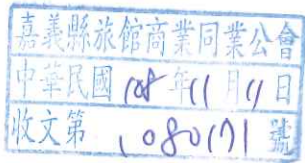 嘉義縣旅館商業同業公會
中華民國108年11月11日
收文第1080171號